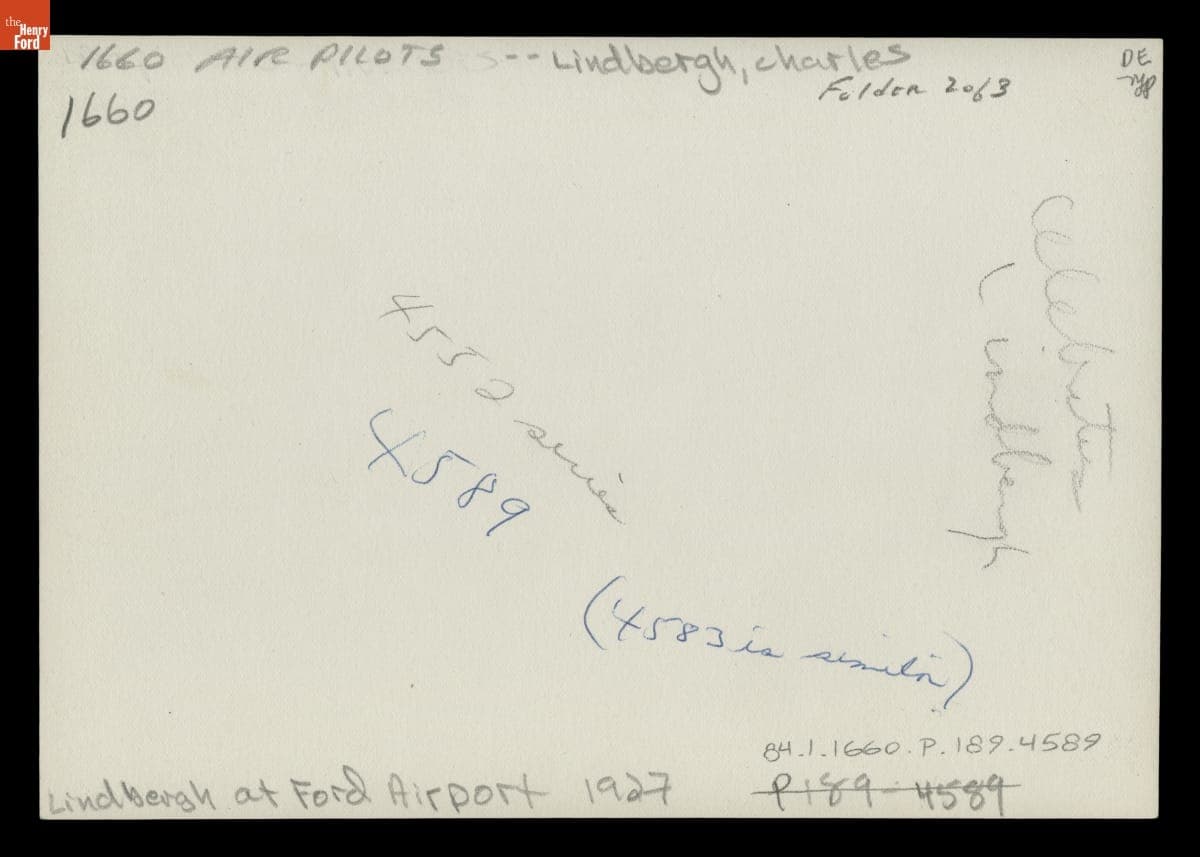 the
Henry
Ford
1660 AIR PILOTS -- Lindbergh, Charles
Folder 2 of 3
DE
1660
Celebrities
(Lindbergh
4552 series
4589
(4583 is similar)
84.1.1660.P.189.4589
Lindbergh at Ford Airport 1927
P189-4589